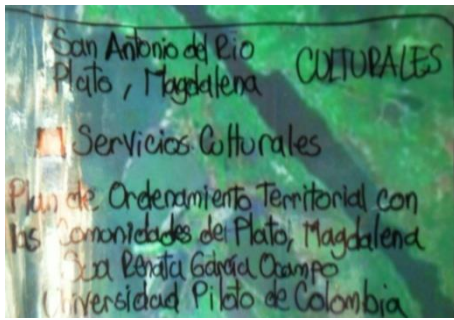 San Antonio del Rio
Plato, Magdalena
CULTURALES
Servicios Culturales
Plan de Ordenamiento Territorial con
las Comonidades del Plato, Magdalena
Renata García Ocampo
Universidad Piloto de Colombia